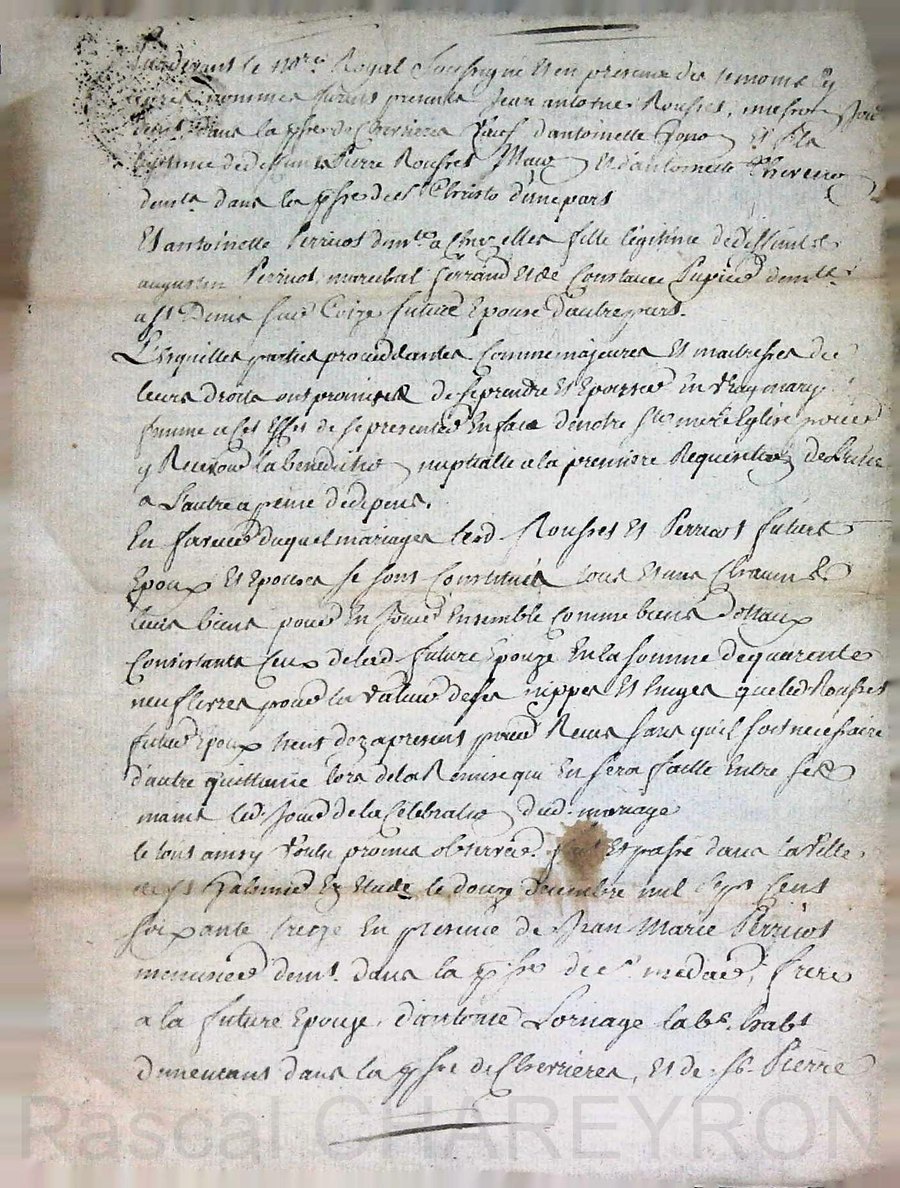 Pardevant le nore Royal soussigné et en presence des temoins cy
apres nommes furent presents Jean antoine Rousset, masson
demt dans la psse de Chevrieres veuf d'antoinette et fils
legitime de deffunt Pierre Rousset et d'antoinette
demte dans la psse de st Christo d'une part
Et antoinette Perricot demte a Chazelles fille légitime de deffunt
augustin Perricot marechal ferrand et de Constance Pupier demte
a st Denis sur Coize future Epouse d'autre part.
Lesquelles parties proceddantes comme majeures et maitresses de
leurs droits ont promises de se prendre et Epouser en vray mary
femme a ces effet de se presenter En face de notre ste mere Eglise pour
y Recevoir la benediction nuptialle a la premiere Requisition de l'une
a L'autre a peine de depens.
En faveur duquel mariage lesd Rousset et Perricot futurs
Epoux et Epouse se sont Constitués tous et uns chacuns
leurs biens pour En jouir Ensemble comme biens dottaux
Consistants ceux de lad future Epouze En la somme de quarente
neuf livres pour la valeur de ses nippes et linges que led Rousset
futur Epoux tient dez apresent pour Reçus sans qu'il soit necessaire
d'autre quittance lors de la Remise qui En sera faitte Entre ses
mains led. jour de la Celebration dud. mariage
le tout ainsy voulu promis observer. fait et passé dans la ville
de st Galmier En Etude le douze decembre mil sept cent
soixante treize En presence de Jean Marie Perricot
menuisier demt. dans la psse de st medard, frere
a la future Epouze, d'antoine Lornage labr. habt
dans la psse de Chevrieres, et de sr. Pierre
Rascal CHAREYRON